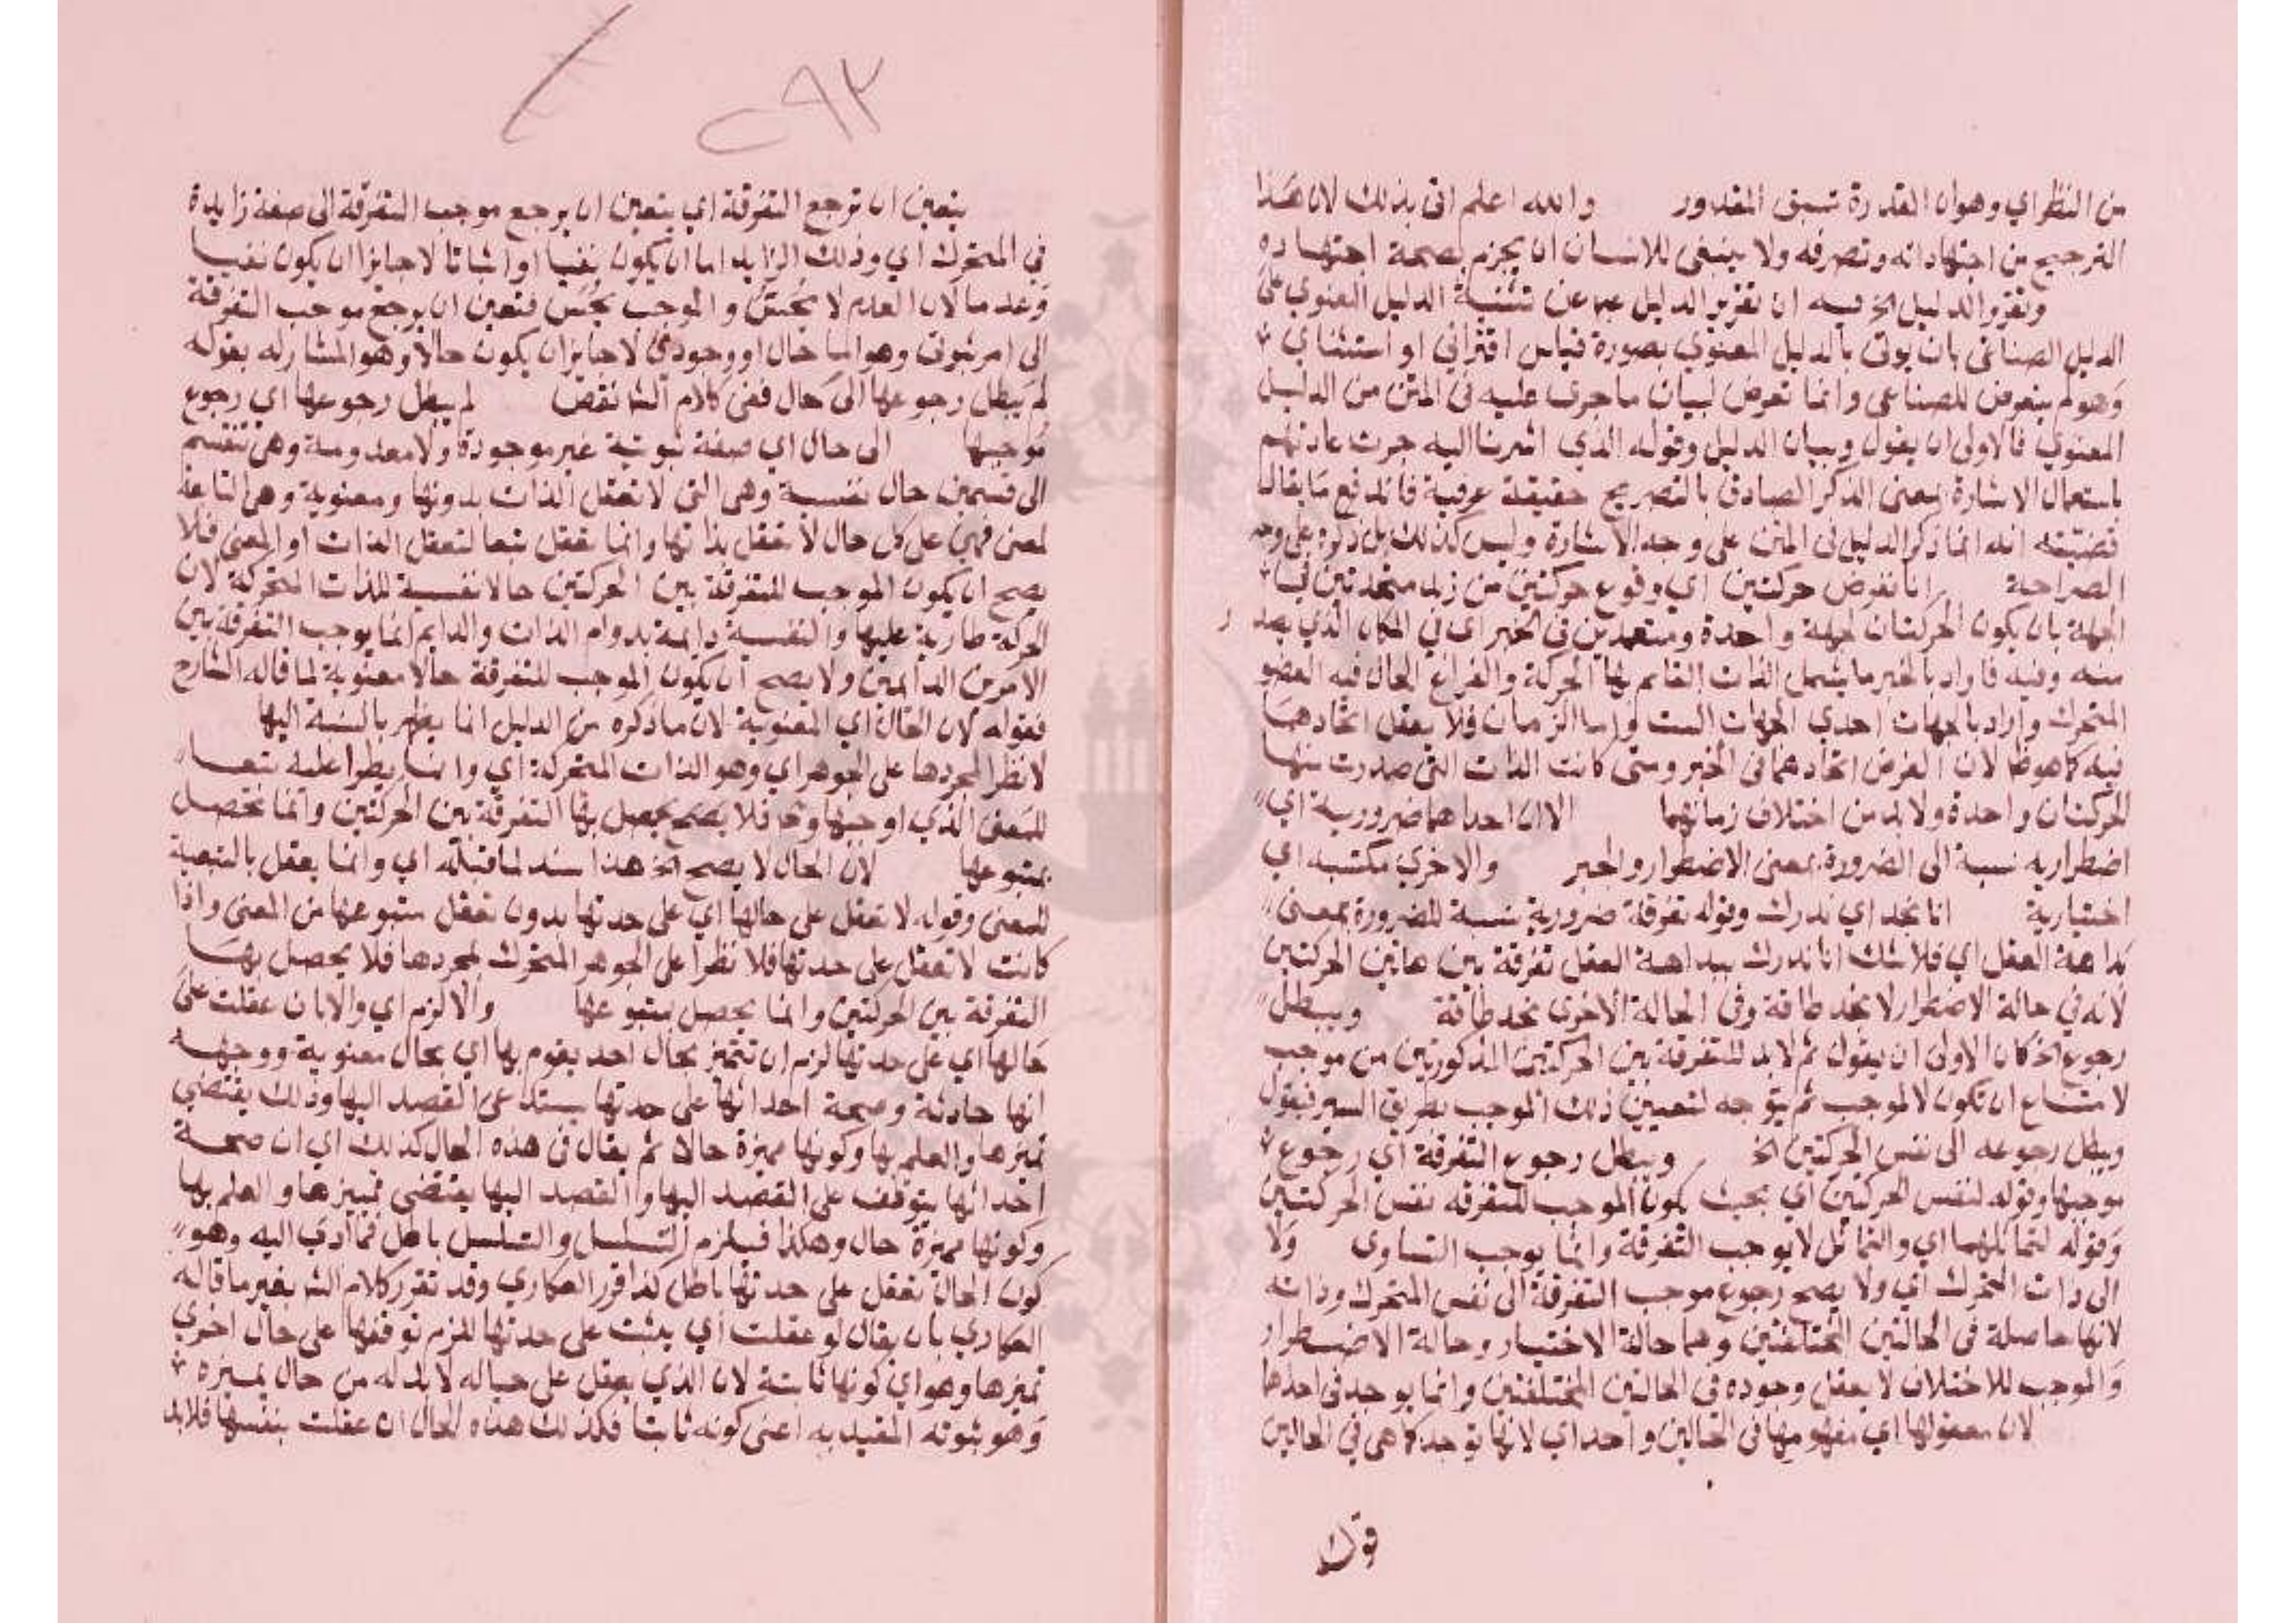 من النظر اي وهو ان القدرة تسبق المقدور والله اعلم اتى بذلك لان هذا
الترجيح من اجتهاداته وتصرفه ولا ينبغى للانسان ان يجزم بصحة اجتهاده
وتقرير الدليل الخ فيه ان تقرير الدليل عبر عن تثنية الدليل المعنوي على
الدليل الصناعى بان يوتى بالدليل المعنوي بصورة قياس اقترانى او استثناي
وهو لم يتعرض للصناعى وانما تعرض لبيان ما جرى عليه فى المتن من الدليل
المعنوي فالاولى ان يقول وبيان الدليل وقوله الذي اشرنا اليه جرت عادتهم
باستعمال الاشارة بمعنى الذكر الصادق بالتصريح حقيقة عرفية فاندفع ما يقال
قضيته انه انما ذكر الدليل فى المتن على وجه الاشارة وليس كذلك بل ذكره على وجه
الصراحة انا نفرض حركتين اي وقوع حركتين من زيد متحدتين في
الجهة بان يكون الحركتان لجهة واحدة ومتحدين فى الحيز اى في المكان الذي يصد ر
منه وفيه فاراد بالحيز ما يشمل الذات القائم بها الحركة والفراغ الحال فيه العضو
المتحرك واراد بالجهات احدي الجهات الست واما الزمان فلا يعقل اتحادهما
فيه كما هو ظ لان الفرض اتحادهما فى الحيز ومتى كانت الذات التى صدرت منها
الحركتان واحدة ولا بد من اختلاف زمانهما الا ان احداهما ضرورية اي
اضطرارية نسبة الى الضرورة بمعنى الاضطرار والجبر والاخرى مكتسبه اي
اختيارية انا نجد اي ندرك وقوله تفرقة ضرورية نسبة للضرورة بمعنى
بداهة العقل اي فلا شك انا ندرك ببداهة العقل تفرقة بين هاتين الحركتين
لانه في حالة الاضطرار لا نجد طاقة وفى الحالة الاخرى نجد طاقة ويبطل
رجوع الخ كان الاولى ان يقول ثم لا بد للتفرقة بين الحركتين المذكورتين من موجب
لامتناع ان تكون لا لموجب ثم يتوجه لتعيين ذلك الموجب بطريق السبر فيقول
ويبطل رجوعه الى نفس الحركتين الخ ويبطل رجوع التفرقة اي رجوع
موجبها وقوله لنفس الحركتين اي بحيث يكون الموجب للتفرقه نفس الحركتين
وقوله لتماثلهما اي والتماثل لا يوجب التفرقة وانما يوجب التساوى ولا
الى ذات المتحرك اي ولا يصح رجوع موجب التفرقة الى نفس المتحرك وذاته
لانها حاصلة فى الحالتين المختلفتين وهما حالة الاختيار وحالة الاضطرار
والموجب للاختلاف لا يعقل وجوده فى الحالتين المختلفتين وانما يوجد فى احدها
لان معقولها اي مفهومها فى الحالين واحد اي لانها توجد كما هى في الحالين
قوله
٥٩٢
يتعين ان ترجع التفرقة اي يتعين ان يرجع موجب التفرقة الى صفة زايدة
فى المتحرك اي وذلك الزايد اما ان يكون نفيا او اثباتا لا جايزا ان يكون نفيا
وعدما لان العدم لا يحس والموجب يحس فتعين ان يرجع موجب التفرقة
الى امر ثبوتى وهو اما حال او وجودي لا جايز ان يكون حالا وهو المشار له بقوله
لم يبطل رجوعها الى حال ففى كلام الش نقص لم يبطل رجوعها اي رجوع
موجبها الى حال اي صفة ثبوتية غير موجودة ولا معدومة وهى تنقسم
الى قسمين حال نفسية وهى التى لا تعقل الذات بدونها ومعنوية وهى التابعة
لمعنى فهى على كل حال لا تعقل بذاتها وانما تعقل تبعا لتعقل الذات او المعنى فلا
يصح ان يكون الموجب للتفرقة بين الحركتين حالا نفسية للذات المتحركة لان
الحركة طارية عليها والنفسية دايمة بدوام الذات والدايم انما يوجب التفرقة بين
الامرين الدائمين ولا يصح ان يكون الموجب للتفرقة حالا معنوية لما قاله الشارح
فقوله لان الحال اي المعنوية لان ما ذكره من الدليل انما يظهر بالنسبة اليها
لا تطرا لمجردها على الجوهر اي وهو الذات المتحركة اي وانما يطرا عليه تبعا
للمعنى الذي اوجبها وح فلا يصح يحصل بها التفرقة بين الحركتين وانما تحصل
بمتبوعها لان الحال لا يصح الخ هذا سند لما قبله اي وانما يعقل بالتبعية
للمعنى وقوله لا تعقل على حالها اي على حدتها بدون تعقل متبوعها من المعنى واذا
كانت لا تعقل على حدتها فلا تطرا على الجوهر المتحرك لمجردها فلا يحصل بها
التفرقة بين الحركتين وانما يحصل بمتبوعها والا لزم اي والا بان عقلت على
حالها اي على حدتها لزم ان تتميز بحال احد يقوم بها اي بحال معنوية ووجهه
انها حادثة وصحة احداثها على حدتها يستدعى القصد اليها وذلك يقتضي
تميزها والعلم بها وكونها مميزة حالا ثم يقال فى هذه الحال كذلك اي ان صحة
احداثها يتوقف على القصد اليها والقصد اليها يقتضى تمييزها والعلم بها
وكونها مميزة حال وهكذا فيلزم التسلسل والتسلسل باطل فما ادى اليه وهو
كون الحال تعقل على حدتها باطل كذا قرر العكاري وقد تقرر كلام الش بغير ما قاله
العكاري بان يقال لو عقلت اي يثبت على حدتها للزم توقفها على حال اخرى
تميزها وهو اي كونها ثابتة لان الذي يعقل على حياله لا بد له من حال يميزه
وهو ثبوته المقيد به اعنى كونه ثابتا فكذلك هذه الحال ان عقلت بنفسها فلا بد